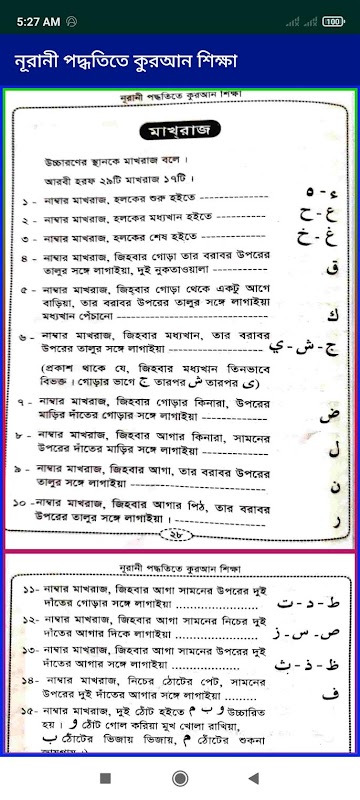 5:27 AM
100
নূরানী পদ্ধতিতে কুরআন শিক্ষা
নূরানী পদ্ধতিতে কুরআন শিক্ষা
মাখ্‌রাজ
উচ্চারণের স্থানকে মাখরাজ বলে ।
আরবী হরফ ২৯টি মাখরাজ ১৭টি ।
১ - নাম্বার মাখরাজ, হলকের শুরু হইতে -------------- ء - ه
২ - নাম্বার মাখরাজ, হলকের মধ্যখান হইতে ---------- ع - ح
৩ - নাম্বার মাখরাজ, হলকের শেষ হইতে -------------- غ - خ
৪ - নাম্বার মাখরাজ, জিহবার গোড়া তার বরাবর উপরের
তালুর সঙ্গে লাগাইয়া, দুই নুকতাওয়ালা -------------- ق
৫ - নাম্বার মাখরাজ, জিহবার গোড়া থেকে একটু আগে
বাড়িয়া, তার বরাবর উপরের তালুর সঙ্গে লাগাইয়া
মধ্যখান পেঁচানো -------------- ك
৬ - নাম্বার মাখরাজ, জিহবার মধ্যখান, তার বরাবর
উপরের তালুর সঙ্গে লাগাইয়া -------------- ج - ش - ي
(প্রকাশ থাকে যে, জিহবার মধ্যখান তিনভাবে
বিভক্ত । গোড়ার ভাগে ج তারপর ش তারপর ي)
৭ - নাম্বার মাখরাজ, জিহবার গোড়ার কিনারা, উপরের
মাড়ির দাঁতের গোড়ার সঙ্গে লাগাইয়া -------------- ض
৮ - নাম্বার মাখরাজ, জিহবার আগার কিনারা, সামনের
উপরের দাঁতের মাড়ির সঙ্গে লাগাইয়া -------------- ل
৯ - নাম্বার মাখরাজ, জিহবার আগা, তার বরাবর উপরের
তালুর সঙ্গে লাগাইয়া -------------- ن
১০ -নাম্বার মাখরাজ, জিহবার আগার পিঠ, তার বরাবর
উপরের তালুর সঙ্গে লাগাইয়া । -------------- ر
২৮
নূরানী পদ্ধতিতে কুরআন শিক্ষা
১১- নাম্বার মাখরাজ, জিহবার আগা সামনের উপরের দুই
দাঁতের গোড়ার সঙ্গে লাগাইয়া .................... ط - د - ت
১২- নাম্বার মাখরাজ, জিহবার আগা সামনের নিচের দুই
দাঁতের আগার দিকে লাগাইয়া .................... ص - س - ز
১৩- নাম্বার মাখরাজ, জিহবার আগা সামনের উপরের দুই
দাঁতের আগার সঙ্গে লাগাইয়া .................... ظ - ذ - ث
১৪- নাম্বার মাখরাজ, নিচের ঠোটের পেট, সামনের
উপরের দুই দাঁতের আগার সঙ্গে লাগাইয়া ......... ف
১৫- নাম্বার মাখরাজ, দুই ঠোঁট হইতে و ب م উচ্চারিত
হয় । و ঠোঁট গোল করিয়া মুখ খোলা রাখিয়া,
ب ঠোঁটের ভিজায় ভিজায়, م ঠোঁটের শুকনা